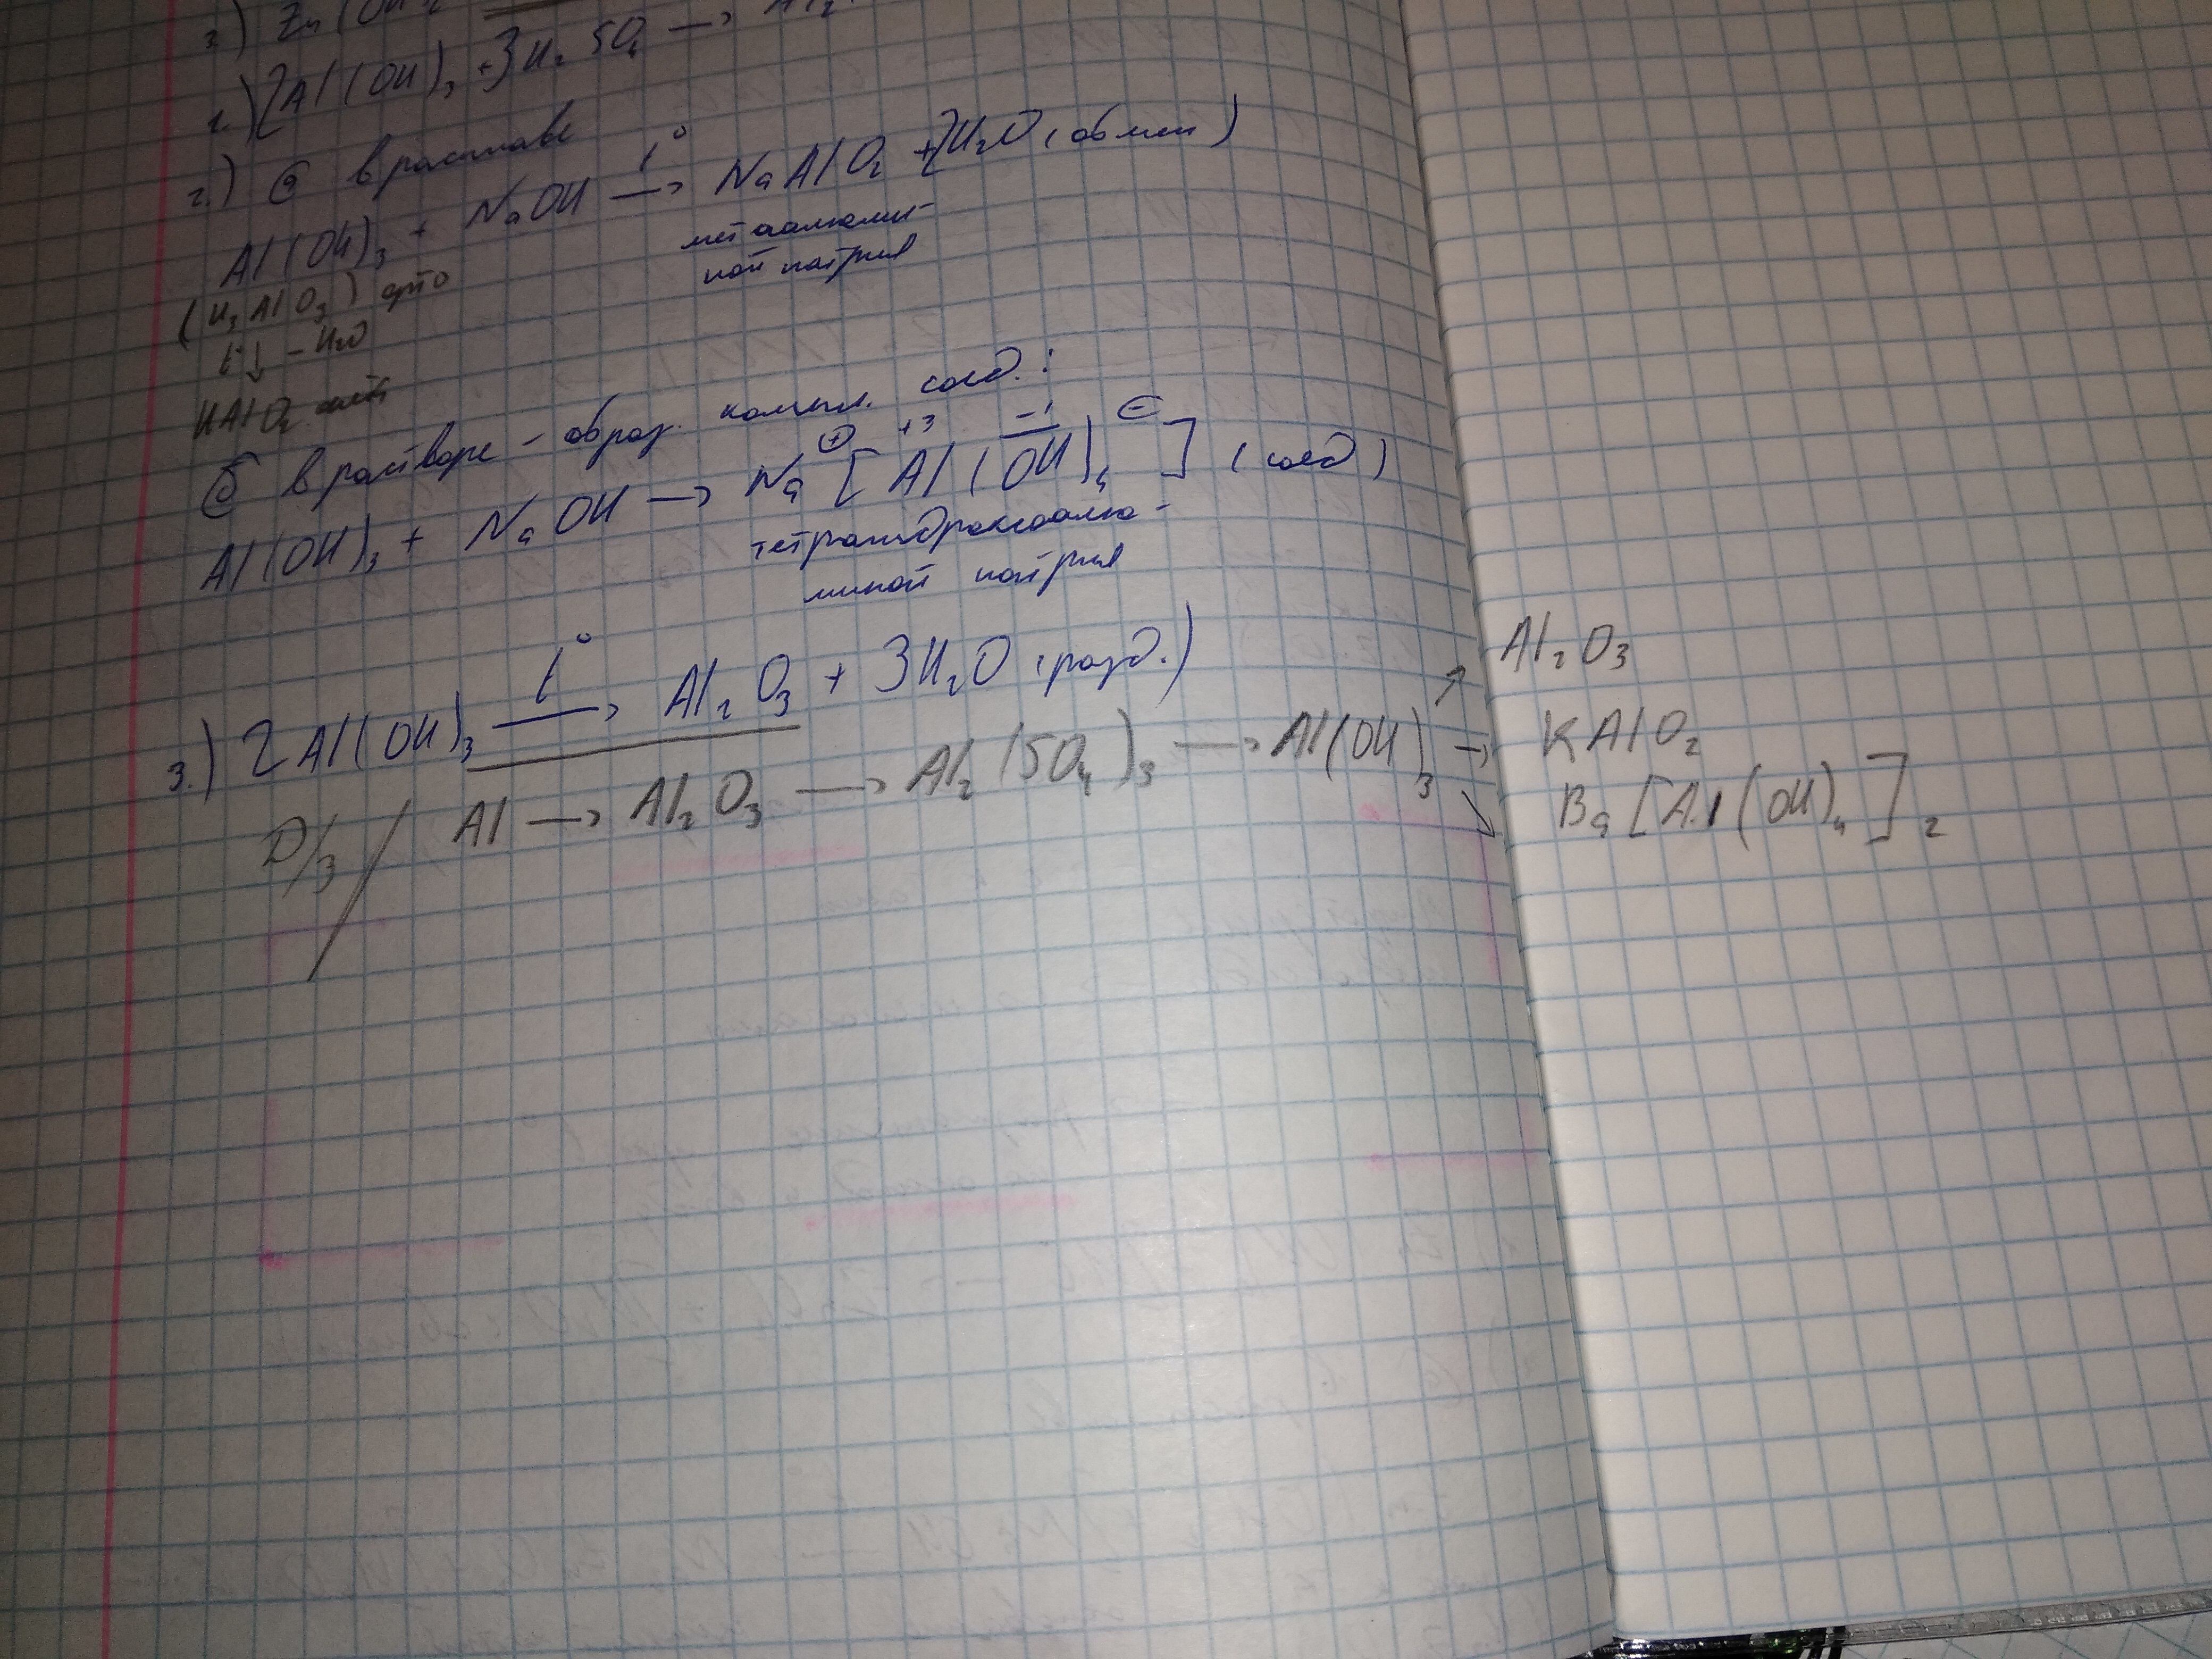 2.) Zn(OH)₂
1.) 2Al(OH)₃ + 3H₂SO₄ → Al₂
2.) а в расплаве
Al(OH)₃ + NaOH t° → NaAlO₂ + 2H₂O (обмен)
метаалюми-
нат натрия
(H₃AlO₃) орто
t° ↓ - H₂O
HAlO₂ мета
б в растворе - образ. компл. соед.:
Al(OH)₃ + NaOH → Na⊕ [Al⁺³(OH)₄⁻¹]⊖ (соед)
тетрагидроксоалю-
минат натрия
3.) 2Al(OH)₃ t° → Al₂O₃ + 3H₂O (разл.)
Д/З / Al → Al₂O₃ → Al₂(SO₄)₃ → Al(OH)₃
↗ Al₂O₃
→ KAlO₂
↘ Ba[Al(OH)₄]₂